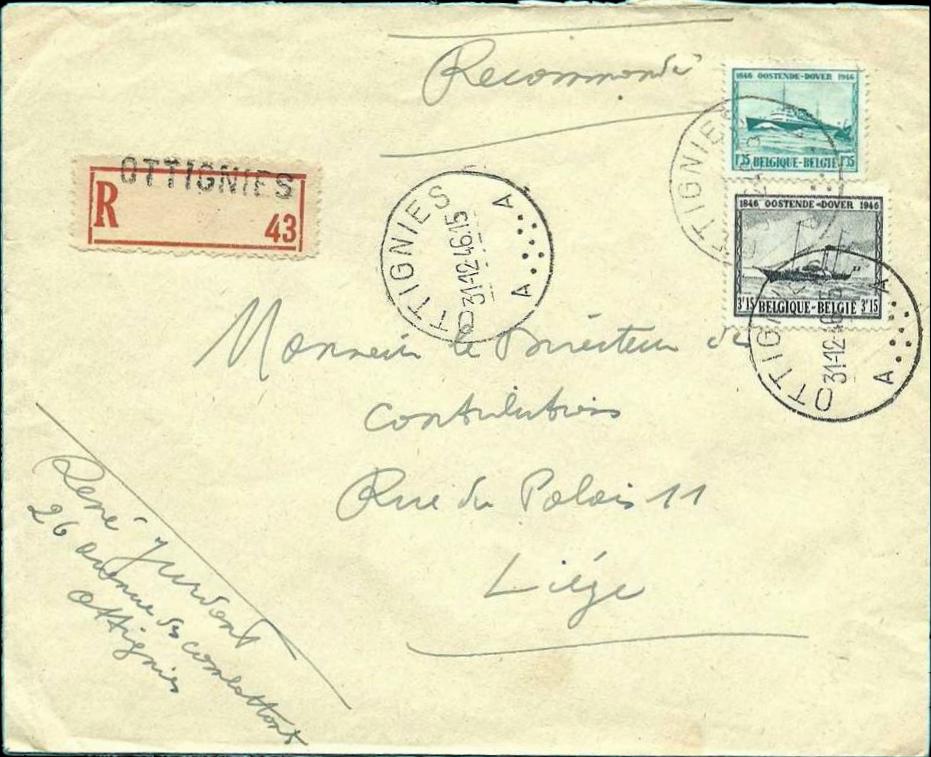 Recommandé
1846 OOSTENDE-DOVER 1946
1'35 BELGIQUE-BELGIË 1'35
1846 OOSTENDE-DOVER 1946
3'15 BELGIQUE-BELGIË 3'15
OTTIGNIES
R
43
OTTIGNIES
31-12-46 15
A A
OTTIGNIES
OTTIGNIES
31-12-46 15
A A
Monsieur le Directeur des
Contributions
Rue du Palais 11
Liége
René Jurdant
26 avenue des combattants
Ottignies